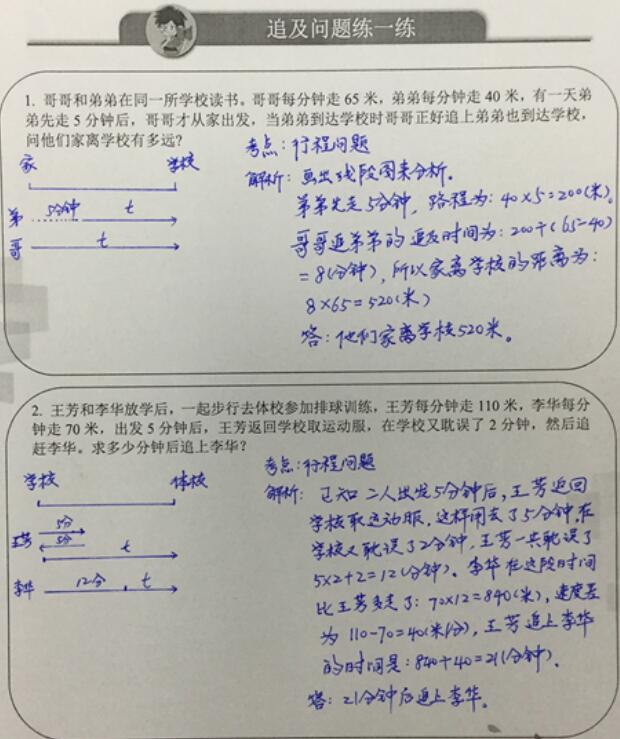 追及问题练一练
1. 哥哥和弟弟在同一所学校读书。哥哥每分钟走 65 米，弟弟每分钟走 40 米，有一天弟
弟先走 5 分钟后，哥哥才从家出发，当弟弟到达学校时哥哥正好追上弟弟也到达学校，
问他们家离学校有多远？
考点：行程问题
家 学校
解析：画出线段图来分析。
弟 5分钟 t
弟弟先走5分钟，路程为：40×5=200(米)。
哥 t
哥哥追弟弟的追及时间为：200÷(65-40)
=8(分钟)，所以家离学校的距离为：
8×65=520(米)
答：他们家离学校520米。
2. 王芳和李华放学后，一起步行去体校参加排球训练，王芳每分钟走 110 米，李华每分
钟走 70 米，出发 5 分钟后，王芳返回学校取运动服，在学校又耽误了 2 分钟，然后追
赶李华。求多少分钟后追上李华？
考点：行程问题
学校 体校
解析：已知二人出发5分钟后，王芳返回
学校取运动服，这样用去了5分钟，在
学校又耽误了2分钟，王芳一共耽误了
5×2+2=12(分钟)。李华在这段时间
比王芳多走了：70×12=840(米)，速度差
为 110-70=40(米/分)，王芳追上李华
的时间是：840÷40=21(分钟)。
答：21分钟后追上李华。
5分
王芳 5分 t
李华 12分 t